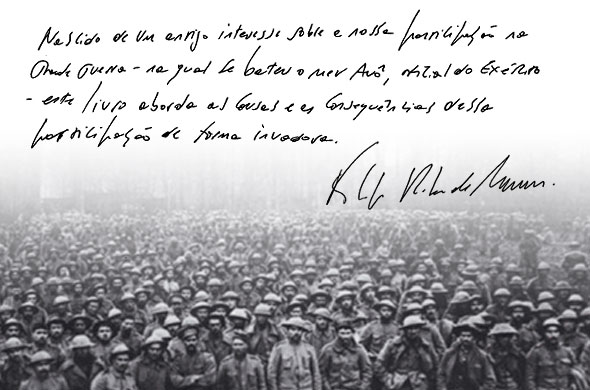 Nascido de um antigo interesse sobre a nossa participação na
Grande Guerra - na qual se bateu o meu Avô, oficial do Exército
- este livro aborda as causas e as consequências dessa
participação de forma inovadora.